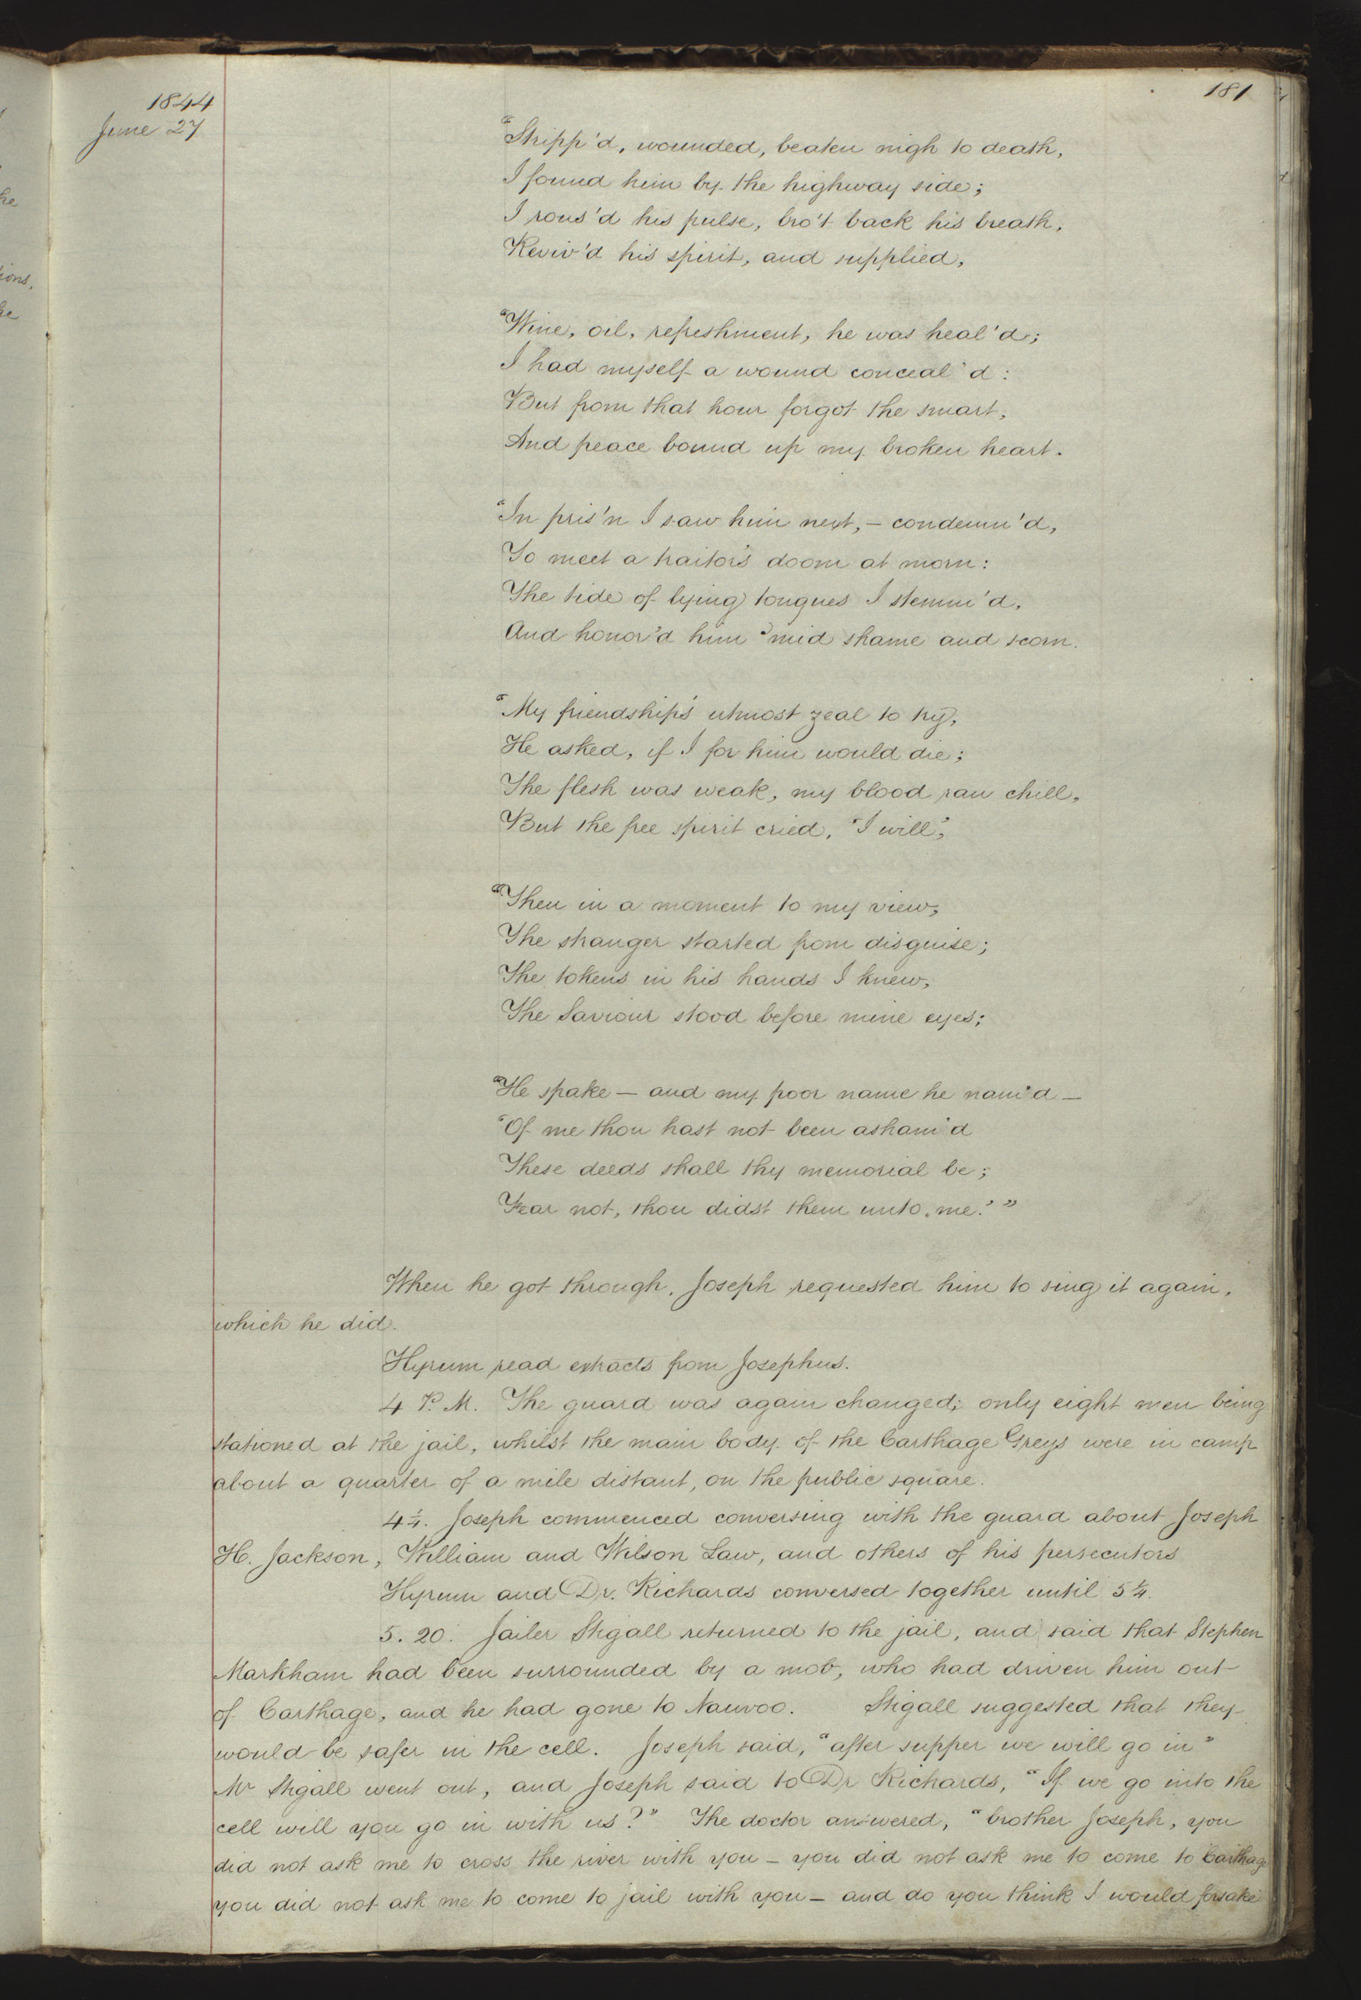 181
1844
June 27
"Stripp'd, wounded, beaten nigh to death,
I found him by the highway side;
I rous'd his pulse, bro't back his breath,
Reviv'd his spirit, and supplied,
"Wine, oil, refreshment, he was heal'd;
I had myself a wound conceal'd:
But from that hour forgot the smart,
And peace bound up my broken heart.
"In pris'n I saw him next,— condemn'd,
To meet a traitor's doom at morn:
The tide of lying tongues I stemm'd,
And honor'd him 'mid shame and scorn.
"My friendship's utmost zeal to try,
He asked, if I for him would die;
The flesh was weak, my blood ran chill,
But the free spirit cried, "I will",
"Then in a moment to my view,
The stranger started from disguise;
The tokens in his hands I knew,
The Saviour stood before mine eyes;
"He spake — and my poor name he nam'd —
"Of me thou hast not been asham'd
These deeds shall thy memorial be;
Fear not, thou didst them unto me.' "
When he got through, Joseph requested him to sing it again,
which he did.
Hyrum read extracts from Josephus.
4 P. M. The guard was again changed; only eight men being
stationed at the jail, whilst the main body of the Carthage Greys were in camp
about a quarter of a mile distant, on the public square.
4¼. Joseph commenced conversing with the guard about Joseph
H. Jackson, William and Wilson Law, and others of his persecutors
Hyrum and Dr. Richards conversed together until 5¼.
5.20. Jailer Stigall returned to the jail, and said that Stephen
Markham had been surrounded by a mob, who had driven him out
of Carthage, and he had gone to Nauvoo. Stigall suggested that they
would be safer in the cell. Joseph said, "after supper we will go in"
Mr Stigall went out, and Joseph said to Dr Richards, "If we go into the
cell will you go in with us?" The doctor answered, "brother Joseph, you
did not ask me to cross the river with you — you did not ask me to come to Carthage
you did not ask me to come to jail with you — and do you think I would forsake